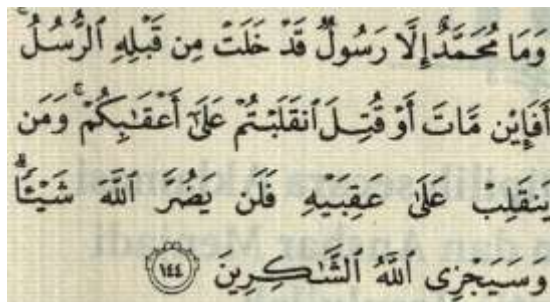 وَمَا مُحَمَّدٌ إِلَّا رَسُولٌ قَدْ خَلَتْ مِن قَبْلِهِ الرُّسُلُ
أَفَإِيْن مَّاتَ أَوْ قُتِلَ ٱنقَلَبْتُمْ عَلَىٰٓ أَعْقَٰبِكُمْ ۚ وَمَن
يَنقَلِبْ عَلَىٰ عَقِبَيْهِ فَلَن يَضُرَّ ٱللَّهَ شَيْـًٔا ۗ
وَسَيَجْزِى ٱللَّهُ ٱلشَّٰكِرِينَ ١٤٤